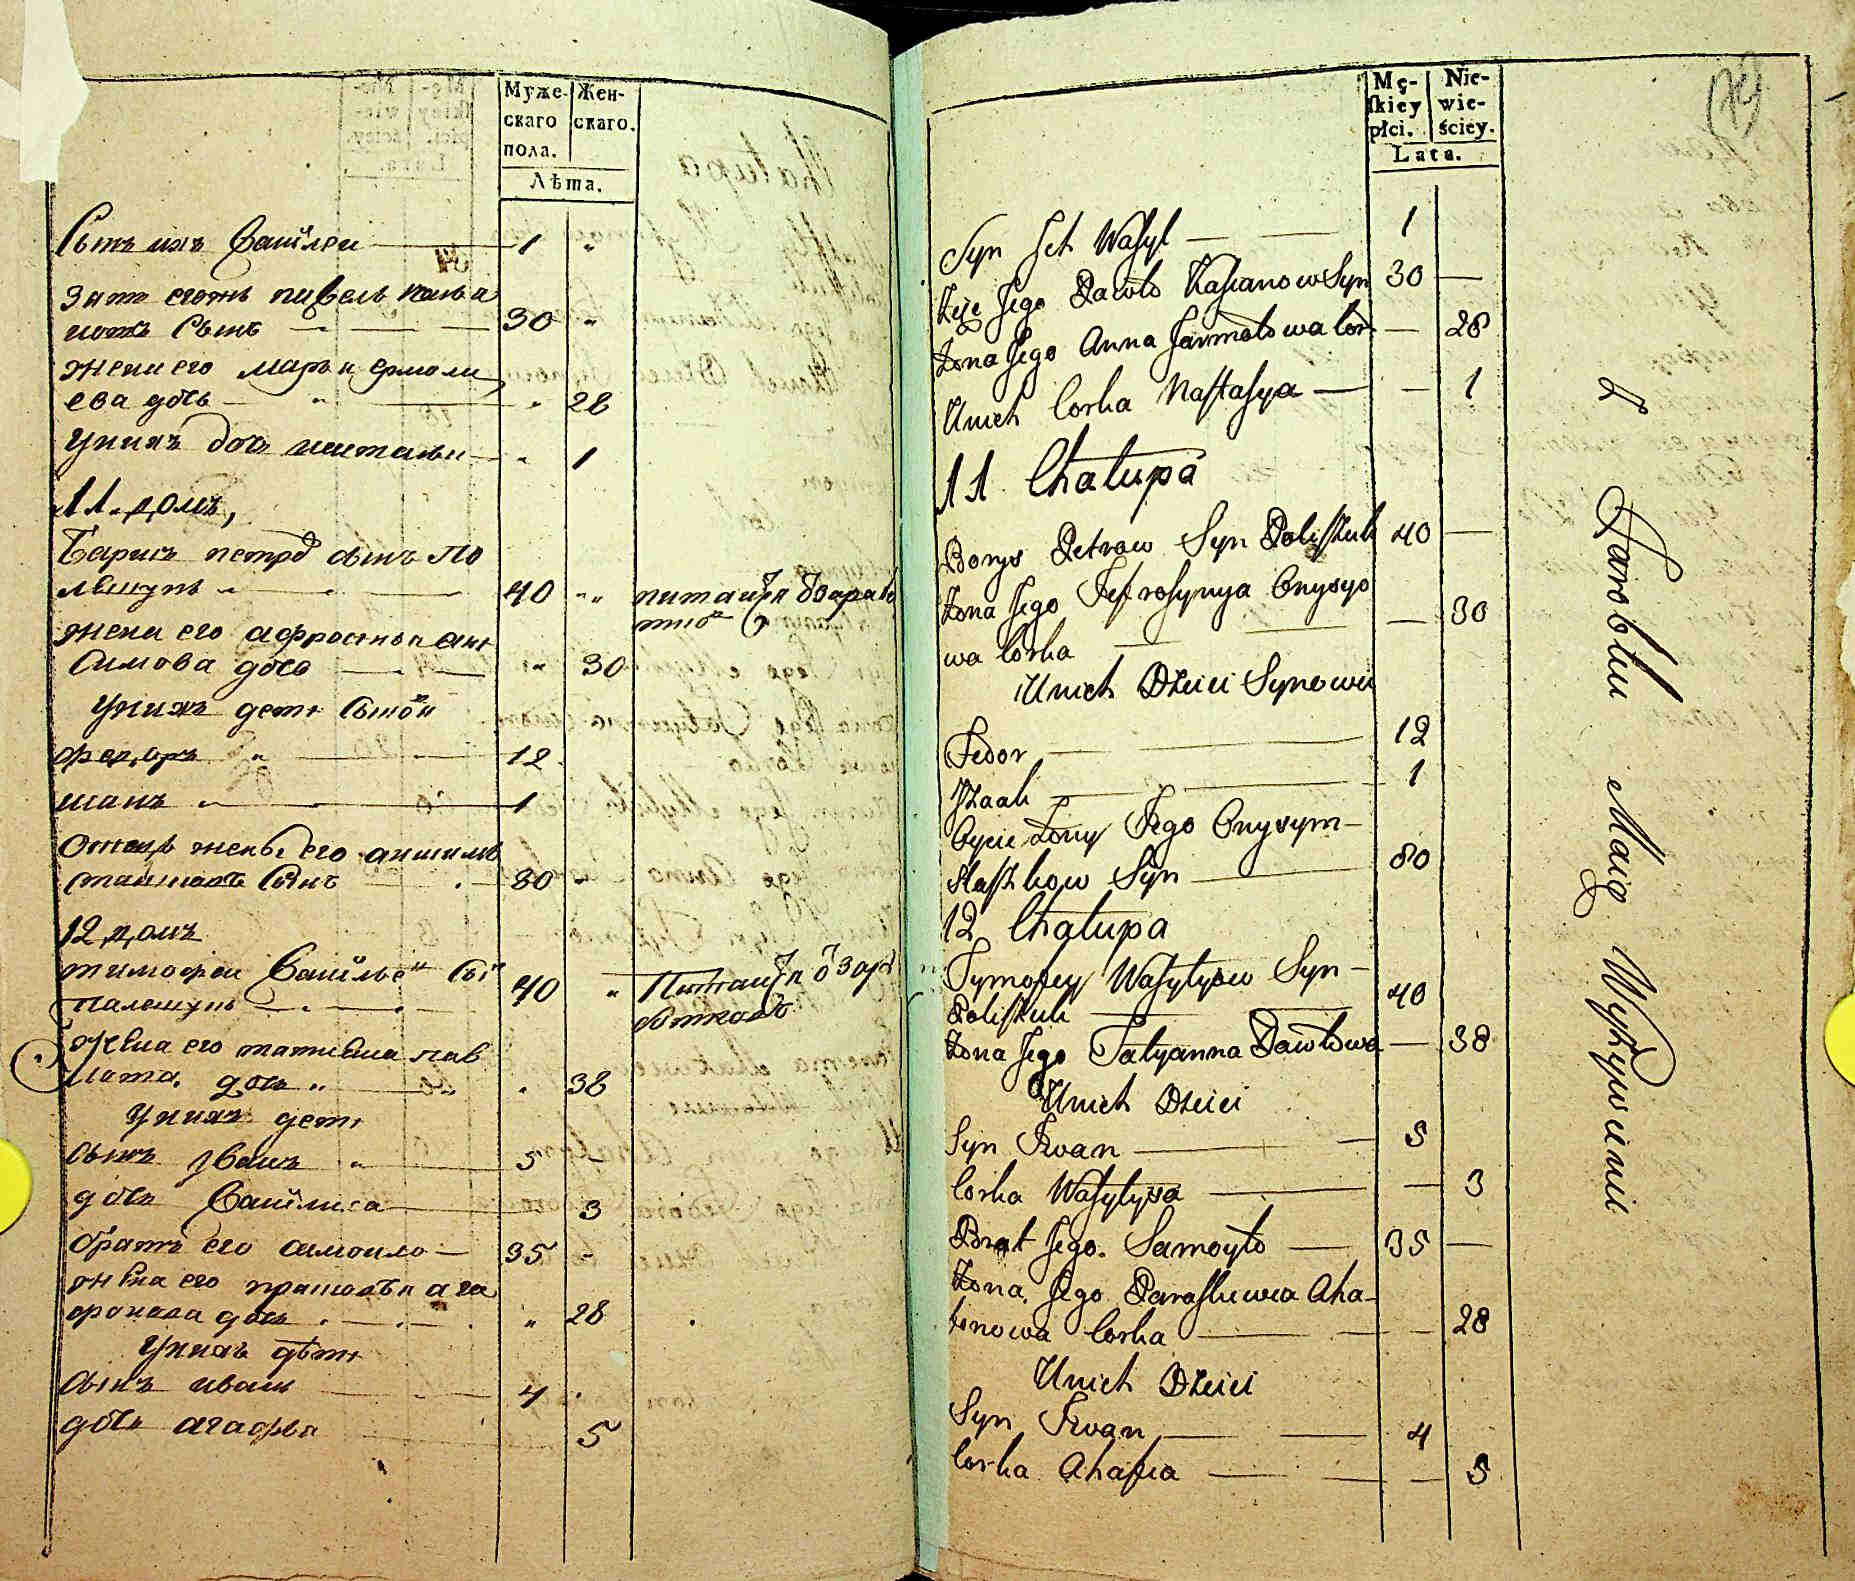 Муже-
скаго
пола.
Жен-
скаго.
Лѣта.
Сынъ ихъ Василеи 1 "
Зять егожъ павелъ касья
новъ Сынъ 30 "
жена его марья ермола
ева дочь " 28
Унихъ дочь настасья " 1
11. домъ,
Барисъ петровъ сынъ по
лешукъ 40 "
жена его афросинья ани
Симова дочь " 30
Унихъ дети
федоръ 12
1
Отецъ жены его
Сынъ 80 "
12 домъ
тимофеи
палешукъ 40 "
жена его татиана пав
лова дочь " 38
Унихъ дети
Сынъ Иванъ 5
дочь Василиса 3
братъ его самоило 35 -
жена его прасковья ага
фонова дочь " 28
Унихъ дѣти
Сынъ иванъ 4
дочь агафья 5
Mę-
ſkiey
płci.
Nie-
wie-
ściey.
Lata.
Syn Ich Wasyl — 1
Zięć Jego Pawło Kasianow Syn 30 —
Żona Jego Anna Jarmołowa Cor. — 28
Unich Corka Nastasya — — 1
11 Chałupa
Borys Petrow Syn Poliszuk 40 —
Żona Jego Jefrosynya Onysyo
wa Corka — — 30
Unich Dzieci Synowie
Fedor — 12
Izaak — 1
Oycie Żony Jego Onysym —
Staszkow Syn — 80
12 Chałupa
Tymofey Wasylyew Syn —
Poliszuk — 40
Żona Jego Tatyanna Pawłowa — 38
Unich Dzieci
Syn Iwan — 5
Corka Wasylysa — — 3
Brat Jego. Samoyło — 35 —
Żona Jego Paraskiewia Aha-
fonowa Corka — — 28
Unich Dzieci
Syn Iwan — 4
Corka Ahafia — — 5
Z Zarobku Maią Wyżywienie